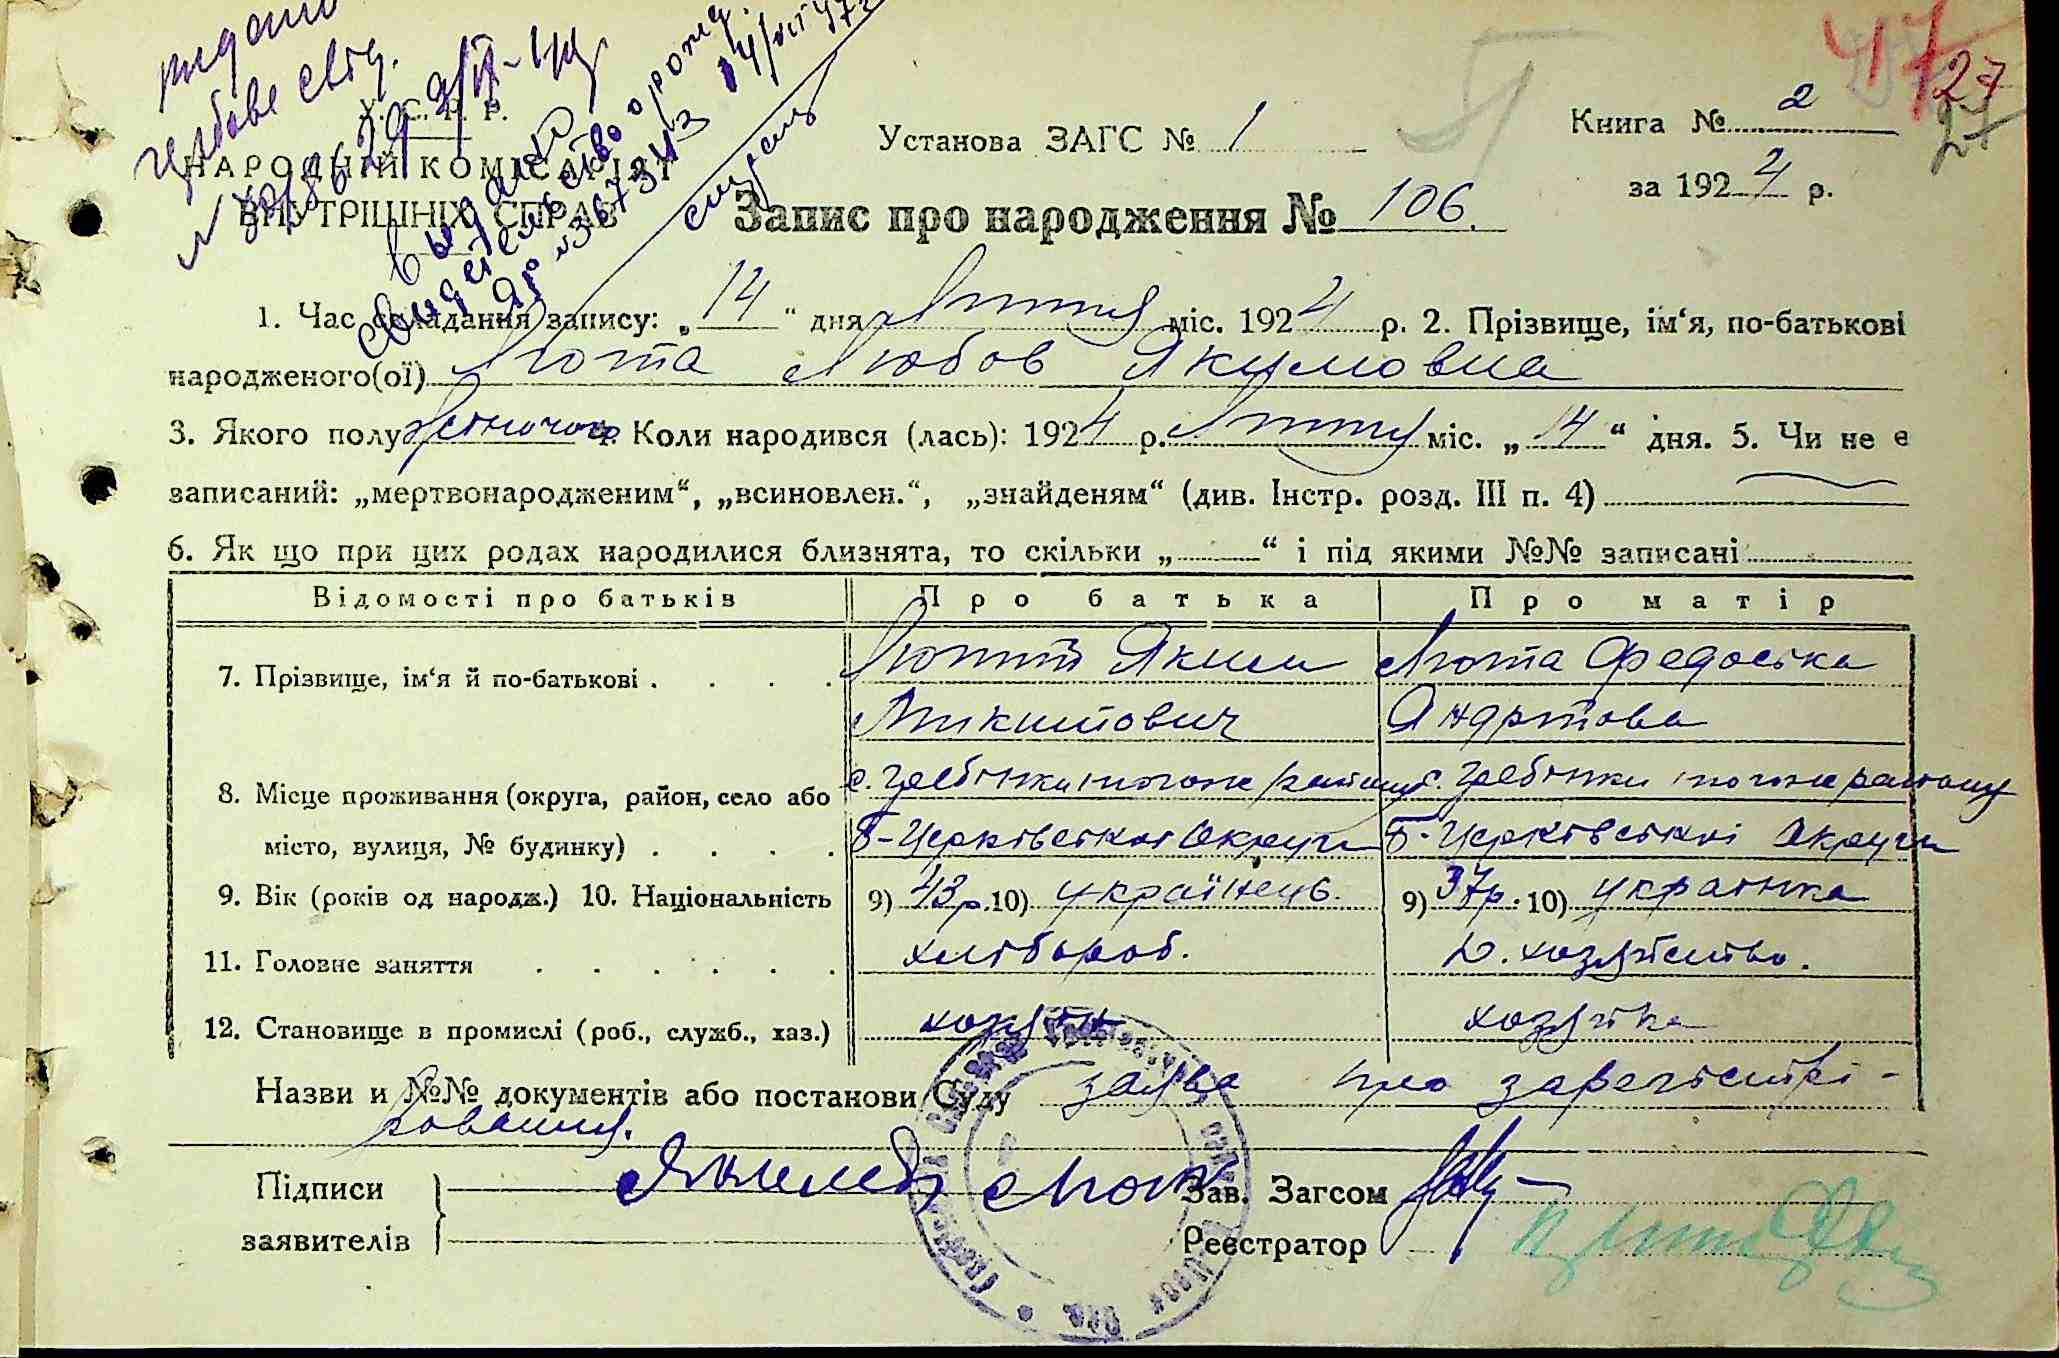 видано
гербове свід.
У. С. Р. Р.
НАРОДНІЙ КОМІСАРІЯТ
ВНУТРІШНІХ СПРАВ
Выдано
свидетельство о рожд.
Установа ЗАГС № 1
Книга № 2
за 1924 р.
47
27
27
Запис про народження № 106.
1. Час складання запису: „14“ дня Лютня міс. 1924 р. 2. Прізвище, ім‘я, по-батькові
народженого(ої) Люта Любов Якимовна
3. Якого полу жіночого 4. Коли народився (лась): 1924 р. Лютня міс. „14“ дня. 5. Чи не є
записаний: „мертвонародженим“, „всиновлен.“, „знайденям“ (див. Інстр. розд. III п. 4)
6. Як що при цих родах народилися близнята, то скільки „ “ і під якими №№ записані
Відомості про батьків Про батька Про матір
7. Прізвище, ім‘я й по-батькові . . . . Лютий Яким Люта Федоська
Микитович Андріівна
8. Місце проживання (округа, район, село або с. Гребінки того ж району с. Гребінки того ж району
місто, вулиця, № будинку) . . . . Б-Церківської Округи Б-Церківської Округи
9. Вік (років од народж.) 10. Національність 9) 43 р. 10) українець. 9) 37 р. 10) українка
11. Головне заняття . . . . . . хлібороб. д. хозяйство.
12. Становище в промислі (роб., служб., хаз.) хозяїн хозяйка
Назви и №№ документів або постанови Суду заява про зарегістрі-
ровання.
Підписи
заявителів
Лют
Зав. Загсом
Реєстратор